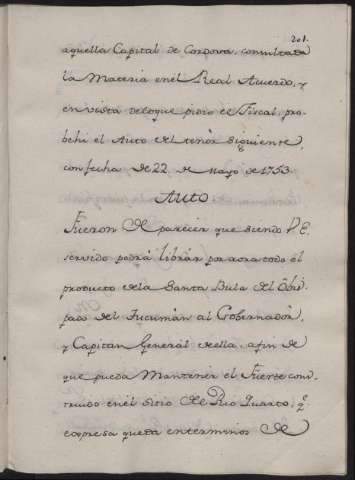 201.
aquella Capital de Cordova, consultada
la Materia en el Real Acuerdo, y
en vista de loque pidio el Fiscal, pro-
behi el Auto del tenòr siguiente,
con fecha de 22 de Mayo de 1753.
Auto
Fueron de parecer que siendo V.E.
servido podrà librar por aora todo el
producto de la Santa Bula del Obis-
pado del Tucumàn al Gobernadòr,
y Capitan General de ella, afin de
que pueda Mantenèr el Fuerte cons-
truido en el Sitio del Rio Quarto, q.e
expresa queda enterminos de